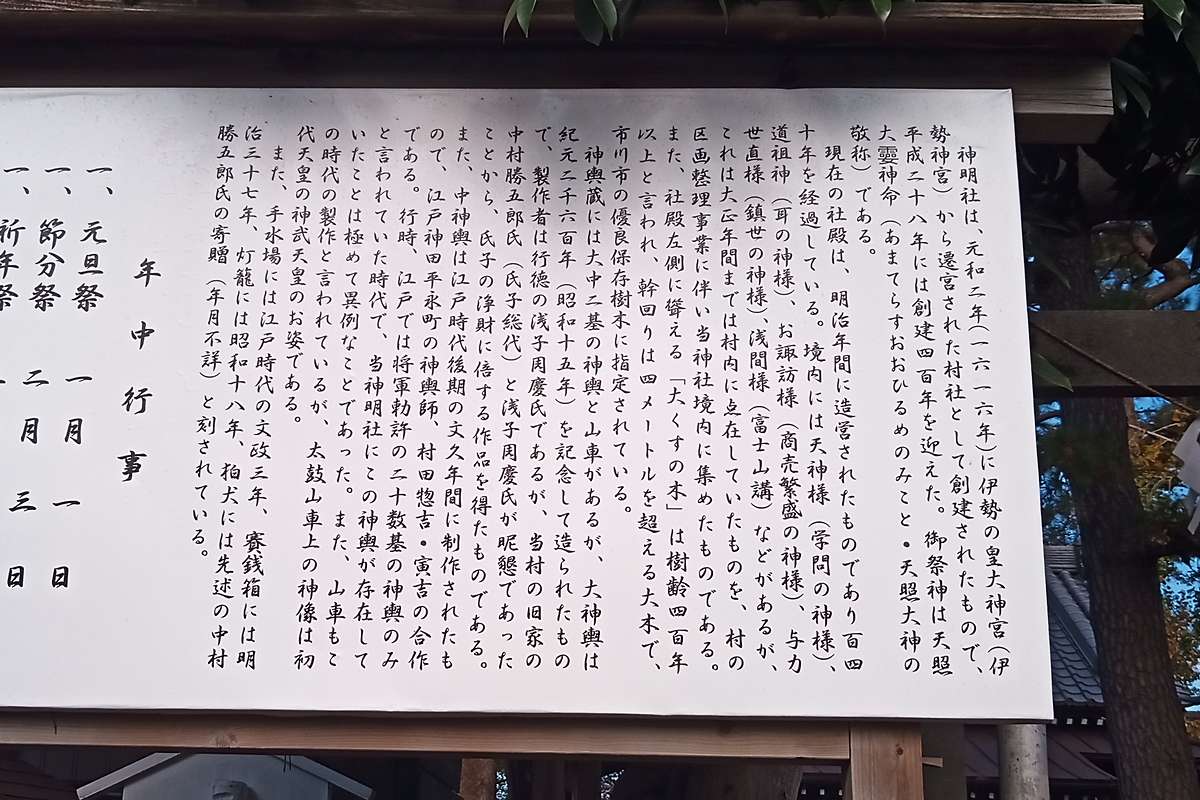 神明社は、元和二年(一六一六年)に伊勢の皇大神宮(伊
勢神宮)から遷宮された村社として創建されたもので、
平成二十八年には創建四百年を迎えた。御祭神は天照
大霊神命(あまてらすおおひるめのみこと・天照大神の
敬称)である。
現在の社殿は、明治年間に造営されたものであり百四
十年を経過している。境内には天神様(学問の神様)、
道祖神(耳の神様)、お諏訪様(商売繁盛の神様)、与力
世直様(鎮世の神様)、浅間様(富士山講)などがあるが、
これは大正年間までは村内に点在していたものを、村の
区画整理事業に伴い当神社境内に集めたものである。
また、社殿左側に聳える「大くすの木」は樹齢四百年
以上と言われ、幹回りは四メートルを超える大木で、
市川市の優良保存樹木に指定されている。
神輿蔵には大中二基の神輿と山車があるが、大神輿は
紀元二千六百年(昭和十五年)を記念して造られたもの
で、製作者は行徳の浅子周慶氏であるが、当村の旧家の
中村勝五郎氏(氏子総代)と浅子周慶氏が昵懇であった
ことから、氏子の浄財に倍する作品を得たものである。
また、中神輿は江戸時代後期の文久年間に制作されたも
ので、江戸神田平永町の神輿師、村田惣吉・寅吉の合作
である。行時、江戸では将軍勅許の二十数基の神輿のみ
と言われていた時代で、当神明社にこの神輿が存在して
いたことは極めて異例なことであった。また、山車もこ
の時代の製作と言われているが、太鼓山車上の神像は初
代天皇の神武天皇のお姿である。
また、手水場には江戸時代の文政三年、賽銭箱には明
治三十七年、灯籠には昭和十八年、狛犬には先述の中村
勝五郎氏の寄贈(年月不詳)と刻されている。
年中行事
一、元旦祭 一月一日
一、節分祭 二月三日
一、祈年祭